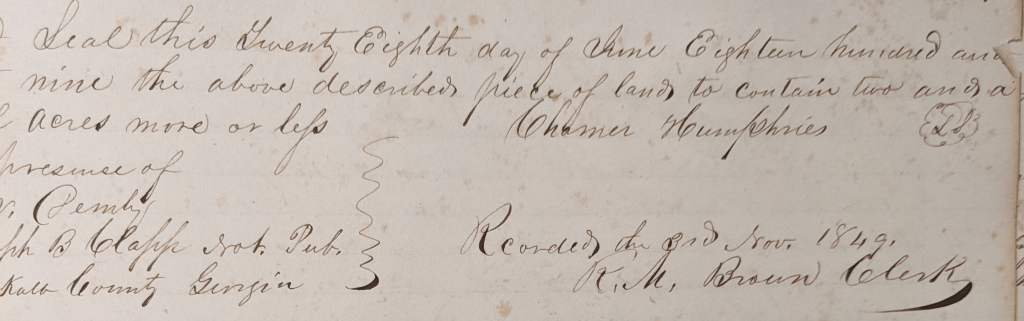 Seal this Twenty Eighth day of June Eighteen hundred and
nine the above described piece of land to contain two and a
acres more or less Charner Humphries LS
presense of
Pemby
ph B Clapp Not. Pub.
Kalb County Georgia
Rcorded the 3rd Nov. 1849.
R. M. Brown Clerk